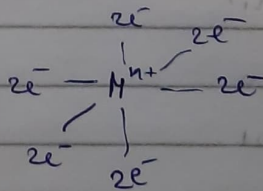 2e⁻
2e⁻
2e⁻ — Mⁿ⁺ — 2e⁻
2e⁻
2e⁻